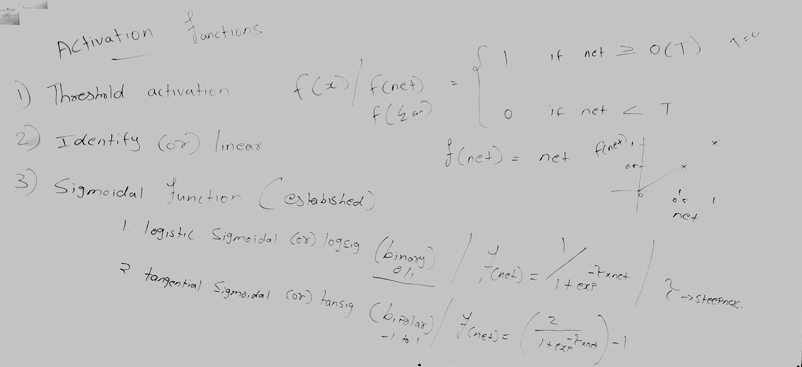 Activation Functions
1) Threshold activation f(x) / f(net) = { 1 if net ≥ 0(T) T=0
f(Σw)
0 if net < T
2) Identify (or) linear f(net) = net
f(net) 1
net 1
3) Sigmoidal function (estabished)
1. logistic Sigmoidal (or) logsig (binary) / f(net) = 1 / 1+exp^-τxnet / τ → steepness.
0/1
2 tangential Sigmoidal (or) tansig (bipolar) / f(net) = (2 / 1+exp^-τxnet) - 1
-1 to 1